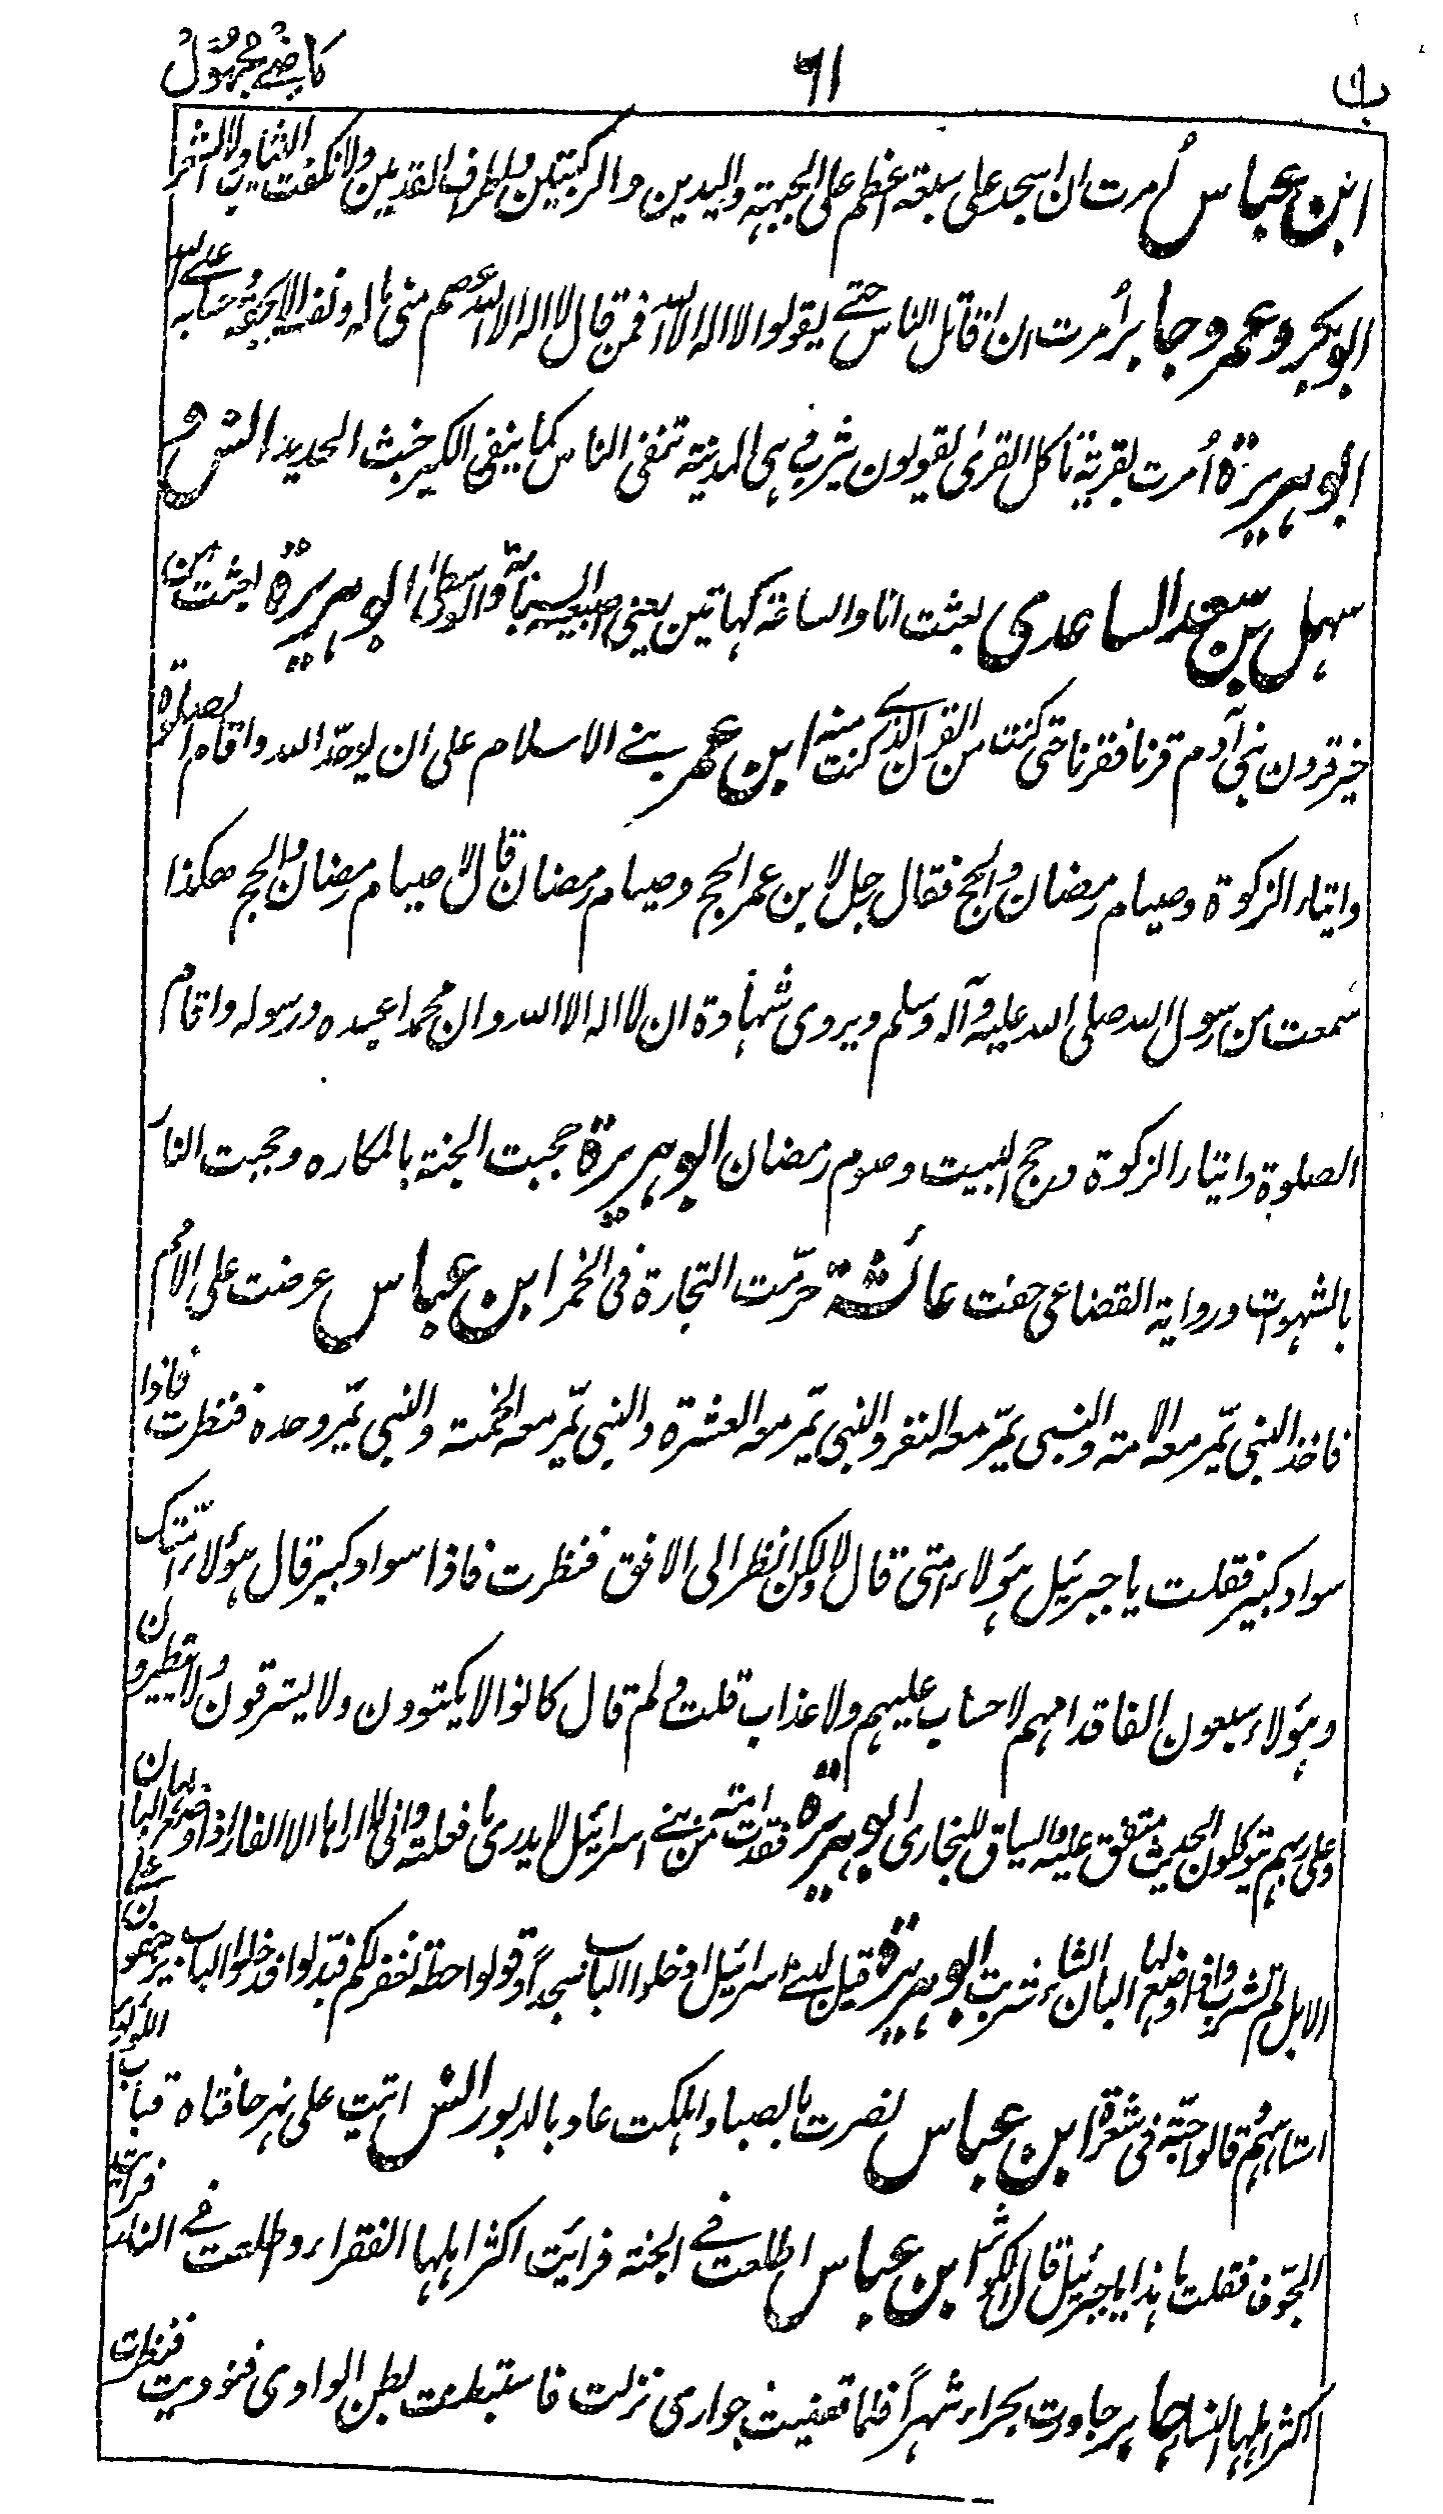 ب ٦١ ماضے مجہول
ابن عباس اُمرت ان اسجد علی سبعة اعظم علی الجبهة والیدین والرکبتین واطراف القدمین ولا نکفت الثیاب ولا الشعر
ابو بکر و عمر و جابر اُمرت ان اقاتل الناس حتے یقولوا لا اله الا الله فمن قال لا اله الا الله عصم منی ماله ونفسه الا بحقه وحسابه علے الله
ابو هریرة اُمرت بقریة تاکل القریٰ یقولون یثرب وهی المدینة تنفی الناس کما ینفی الکیر خبث الحدید انس و
سهل بن سعد الساعدی بعثت انا والساعة کهاتین یعنی اصبعیه السبابة والوسطیٰ ابو هریرة بعثت من
خیر قرون بنی آدم قرنا فقرنا حتی کنت من القرن الذے کنت منه ابن عمر بنے الاسلام علی ان یوحّد الله واقام الصلوة
وایتاء الزکوة وصیام رمضان والحج فقال رجل لابن عمر الحج وصیام رمضان قال لا صیام رمضان والحج هکذا
سمعت من رسول الله صلی الله علیه وآله وسلم ویروی شهادة ان لا اله الا الله وان محمدا عبده ورسوله واقام
الصلوة وایتاء الزکوة وحج البیت وصوم رمضان ابو هریرة حجبت الجنة بالمکاره وحجبت النار
بالشهوات وروایة القضاعی حفت عائشة حرّمت التجارة فی الخمر ابن عباس عرضت علی الامم
فاخذ النبی یمّر معه الامة والنبی یمّر معه النفر والنبی یمّر معه العشرة والنبی یمّر معه الخمسة والنبی یمّر وحده فنظرت فاذا
سواد کبیر فقلت یا جبرئیل هؤلاء امتی قال لا ولکن انظر الی الافق فنظرت فاذا سواد کبیر قال هؤلاء امّتک
وهؤلاء سبعون الفا قدامهم لا حساب علیهم ولا عذاب قلت ولم قال کانوا لا یکتوون ولا یسترقون ولا یتطیرون
وعلی ربهم یتوکلون الحدیث متفق علیه والسیاق للبخاری ابو هریرة فقدت امة من بنے اسرائیل لا یدری ما فعلت وانی لا اراها الا الفار اذا وضع لها البان
الابل لم تشرب واذا وضع لها البان الشاء شربت ابو هریرة قیل لبنے اسرائیل ادخلوا الباب سجداً وقولوا حطة نغفر لکم فبدّلوا فدخلوا الباب یزحفون علے
استاههم وقالوا حبّة فی شعرة ابن عباس نصرت بالصبا واهلکت عاد بالدبور انس اتیت علی نهر حافتاه قباب اللؤلؤ
المجوّف فقلت ما هذا یا جبرئیل قال الکوثر ابن عباس اطلعت فے الجنة فرأیت اکثر اهلها الفقراء واطلعت فے النار فرأیت
اکثر اهلها النساء جابر جاورت بحراء شهراً فلما قضیت جواری نزلت فاستبطنت بطن الوادی فنودیت فنظرت